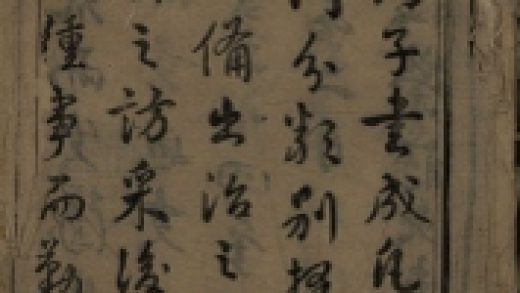 子書成凡
分類別
備出治之
之訪采後
事而勤